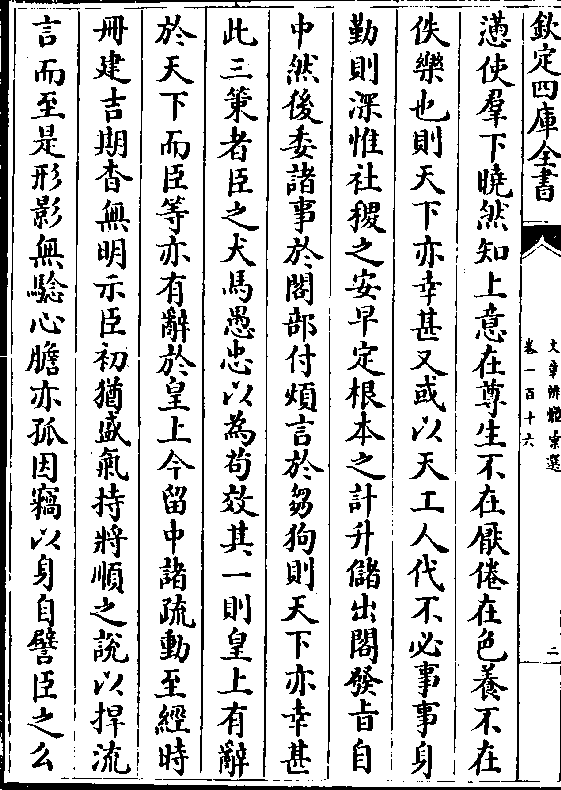 欽定四庫全書
文章辨體彙選
卷一百十六
二
懣使羣下曉然知上意在尊生不在厭倦在色養不在
佚樂也則天下亦幸甚又或以天工人代不必事事身
勤則深惟社稷之安早定根本之計升儲出閣發㫖自
中然後委諸事於閣部付煩言於芻狗則天下亦幸甚
此三策者臣之犬馬愚忠以為苟效其一則皇上有辭
於天下而臣等亦有辭於皇上今留中諸疏動至經時
冊建吉期杳無明示臣初猶盛氣持將順之說以捍流
言而至是形影無驗心膽亦孤因竊以身自譬臣之么